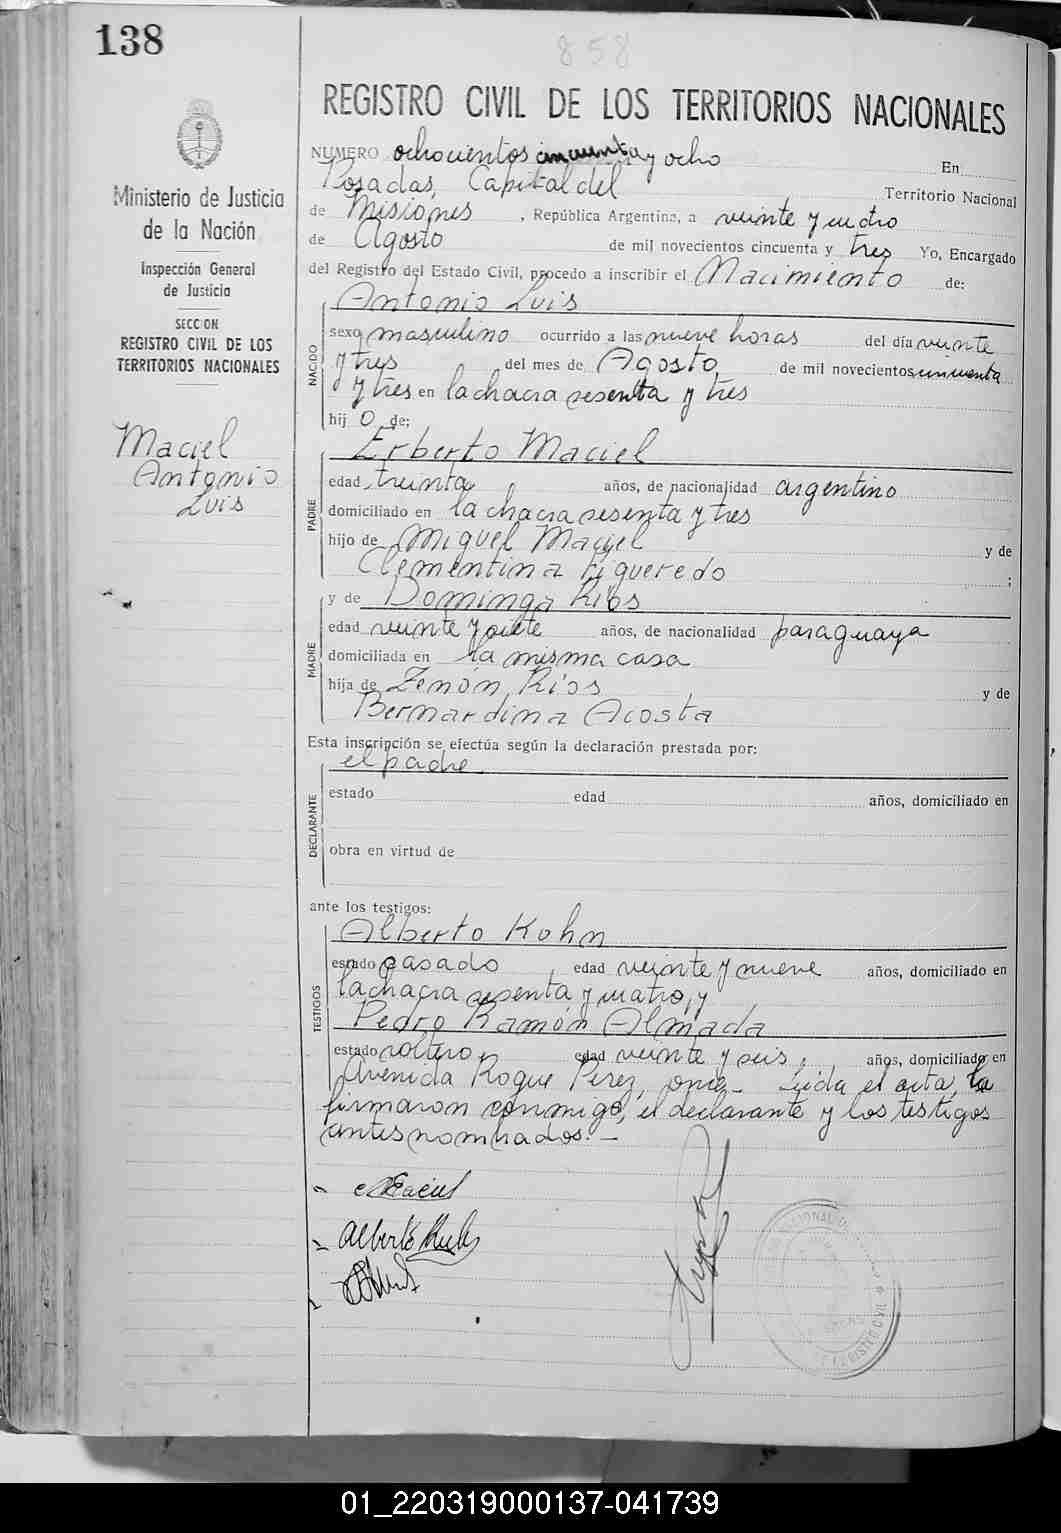 138
858
REGISTRO CIVIL DE LOS TERRITORIOS NACIONALES
Ministerio de Justicia
de la Nación
Inspección General
de Justicia
SECCION
REGISTRO CIVIL DE LOS
TERRITORIOS NACIONALES
Maciel
Antonio
Luis
NUMERO ochocientos cincuenta y ocho En
Posadas, Capital del Territorio Nacional
de Misiones, República Argentina, a veinte y cuatro
de Agosto de mil novecientos cincuenta y tres Yo, Encargado
del Registro del Estado Civil, procedo a inscribir el Nacimiento de:
NACIDO
Antonio Luis
sexo masculino ocurrido a las nueve horas del día veinte
y tres del mes de Agosto de mil novecientos cincuenta
y tres en la chacra sesenta y tres
hijo de:
PADRE
Erberto Maciel
edad treinta años, de nacionalidad argentino
domiciliado en la chacra sesenta y tres
hijo de Miguel Maciel y de
Clementina Figueredo ;
MADRE
y de Dominga Ríos
edad veinte y siete años, de nacionalidad paraguaya
domiciliada en la misma casa
hija de Zenón Ríos y de
Bernardina Acosta
Esta inscripción se efectúa según la declaración prestada por:
DECLARANTE
el padre
estado edad años, domiciliado en
obra en virtud de
ante los testigos:
TESTIGOS
Alberto Kohn
estado casado edad veinte y nueve años, domiciliado en
la chacra sesenta y cuatro, y
Pedro Ramón Almada
estado soltero edad veinte y seis, años, domiciliado en
Avenida Roque Perez, once. Leida el acta, la
firmaron conmigo, el declarante y los testigos
antes nombrados.-
EMaciel
Alberto
REGISTRO CIVIL
01_220319000137-041739